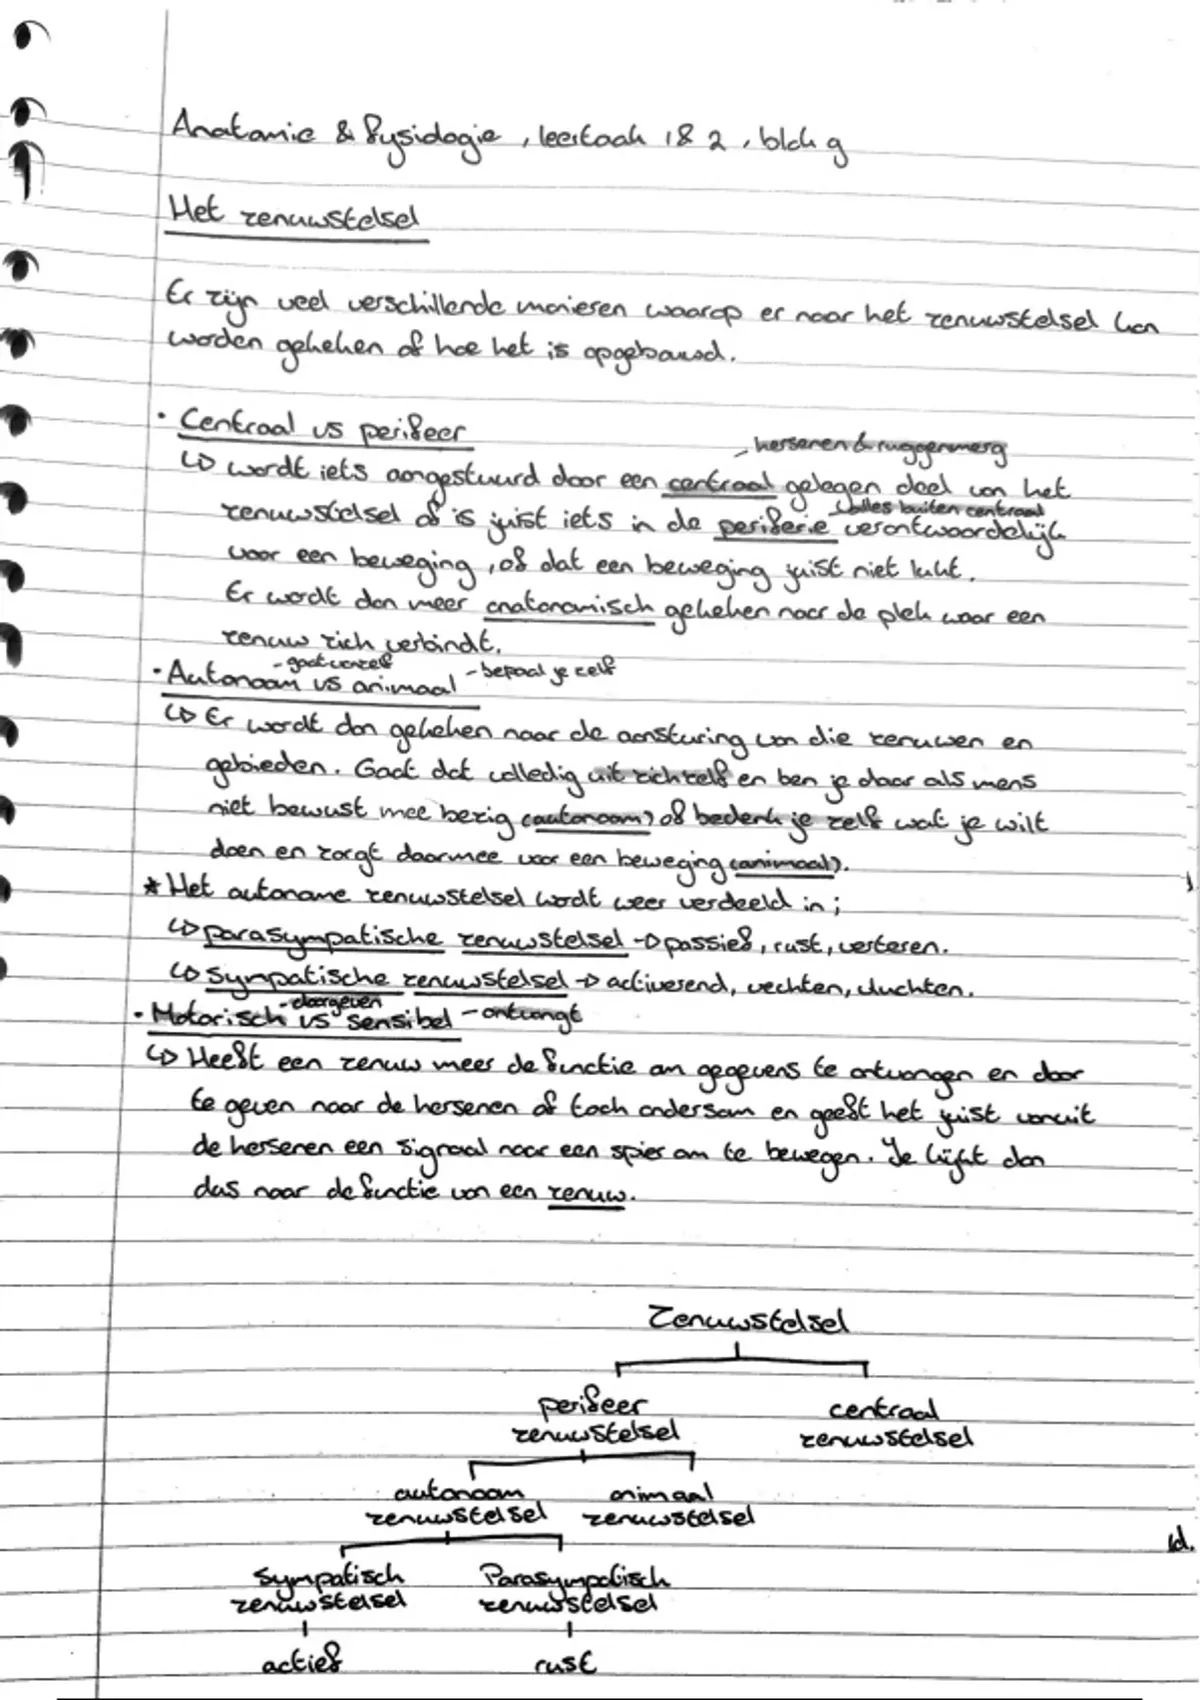 Anatomie & fysiologie, leertaak 1 & 2, blok 9
Het zenuwstelsel
Er zijn veel verschillende manieren waarop er naar het zenuwstelsel kan
worden gekeken of hoe het is opgebouwd.
· Centraal vs perifeer
- hersenen & ruggenmerg
↳ wordt iets aangestuurd door een centraal gelegen deel van het
↳ alles buiten centraal
zenuwstelsel of is juist iets in de periferie verantwoordelijk
voor een beweging, of dat een beweging juist niet lukt.
Er wordt dan meer anatomisch gekeken naar de plek waar een
zenuw zich verbindt.
- gaat vanzelf - bepaal je zelf
· Autonoom vs animaal
↳ Er wordt dan gekeken naar de aansturing van die zenuwen en
gebieden. Gaat dat volledig uit zichzelf en ben je daar als mens
niet bewust mee bezig (autonoom) of bedenk je zelf wat je wilt
doen en zorgt daarmee voor een beweging (animaal).
* Het autonome zenuwstelsel wordt weer verdeeld in;
↳ parasympatische zenuwstelsel → passief, rust, verteren.
↳ sympatische zenuwstelsel → activerend, vechten, vluchten.
- doorgeven - ontvangt
· Motorisch vs sensibel
↳ Heeft een zenuw meer de functie om gegevens te ontvangen en door
te geven naar de hersenen of toch andersom en geeft het juist vanuit
de hersenen een signaal naar een spier om te bewegen. Je kijkt dan
dus naar de functie van een zenuw.
Zenuwstelsel
perifeer centraal
zenuwstelsel zenuwstelsel
autonoom animaal
zenuwstelsel zenuwstelsel
sympatisch Parasympatisch
zenuwstelsel zenuwstelsel
actief rust